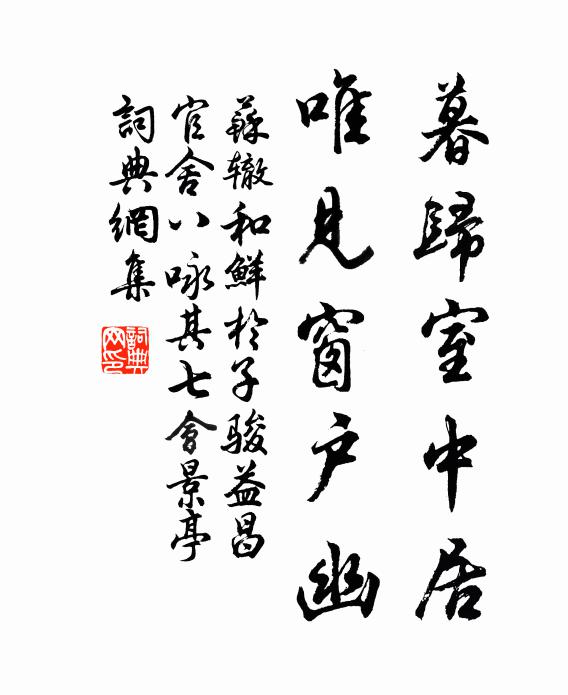 暮歸室中居
唯見窗户幽
蘇辙和鮮於子駿益昌
官舍八咏其七會景亭
詞典網集
詞典网印